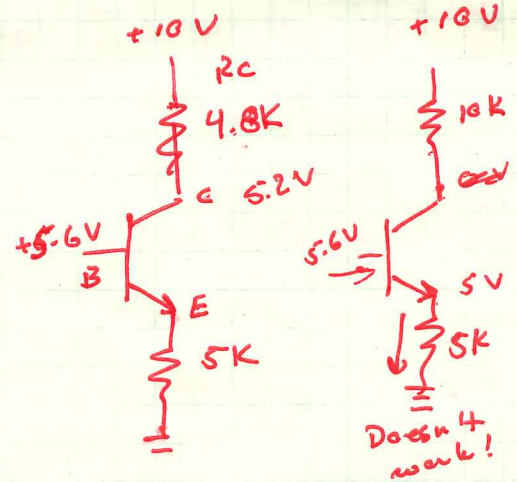 +10 V
RC
4.8K
C 5.2V
+5.6V
B
E
5K
+10 V
10K
5.6V
5V
5K
Doesn't
work!